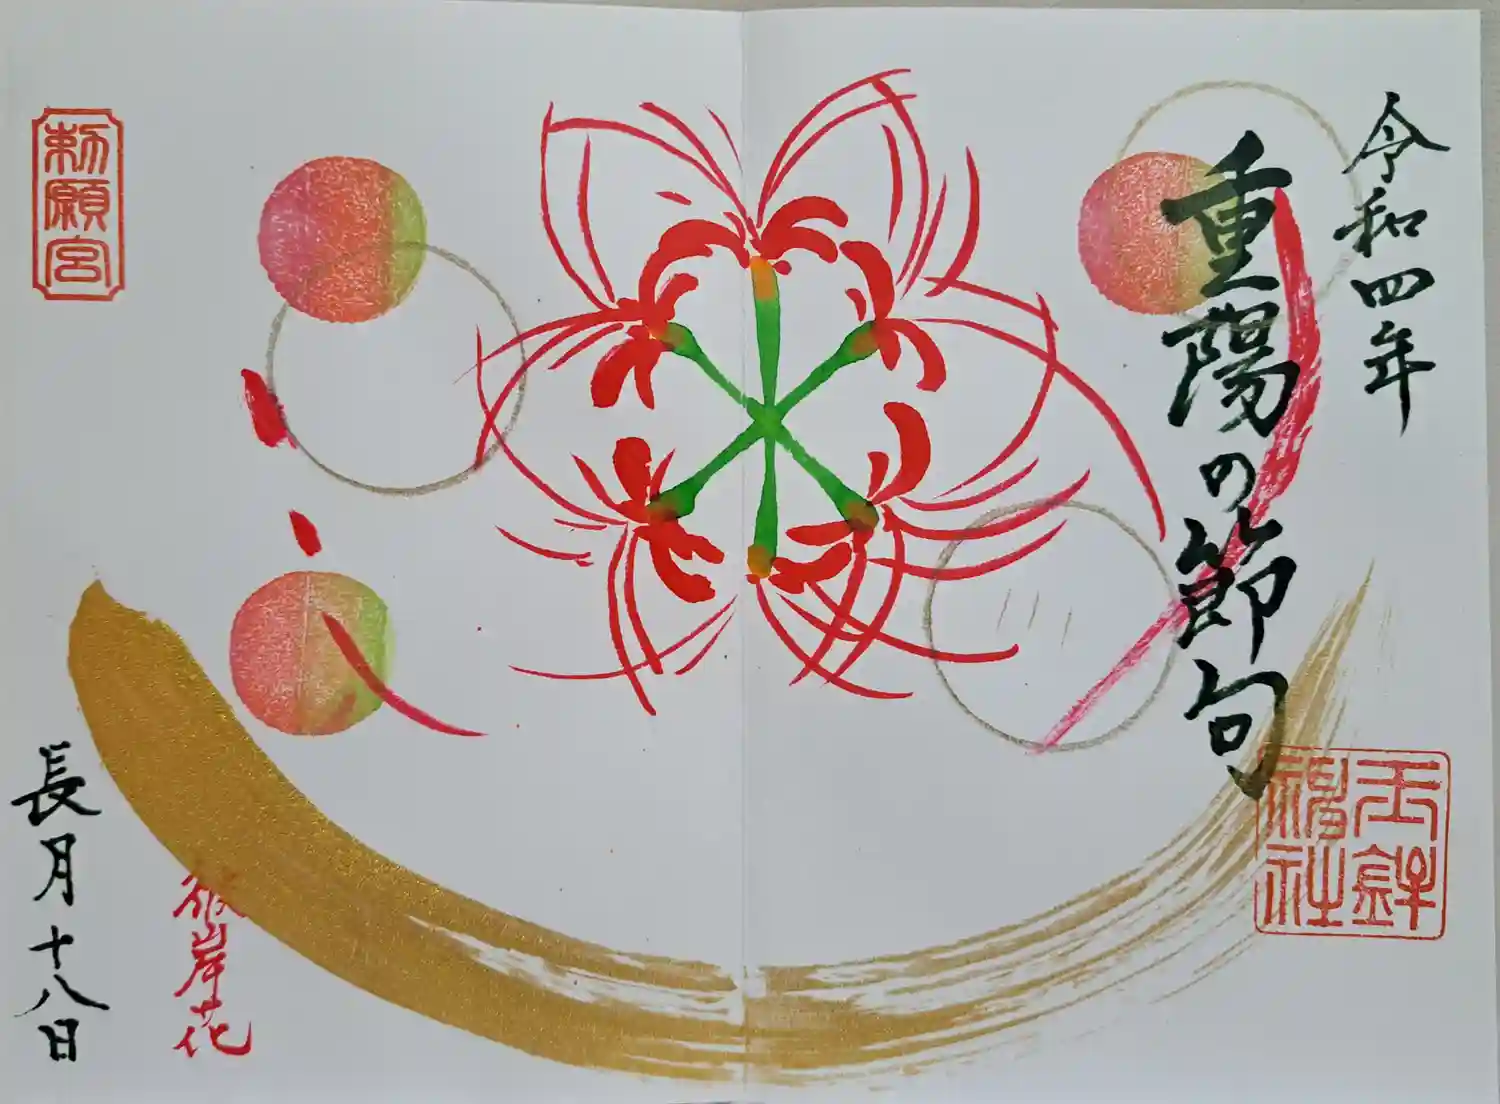 令和四年
重陽の節句
玉鉾
神社
彼岸花
長月十八日
勅願宮